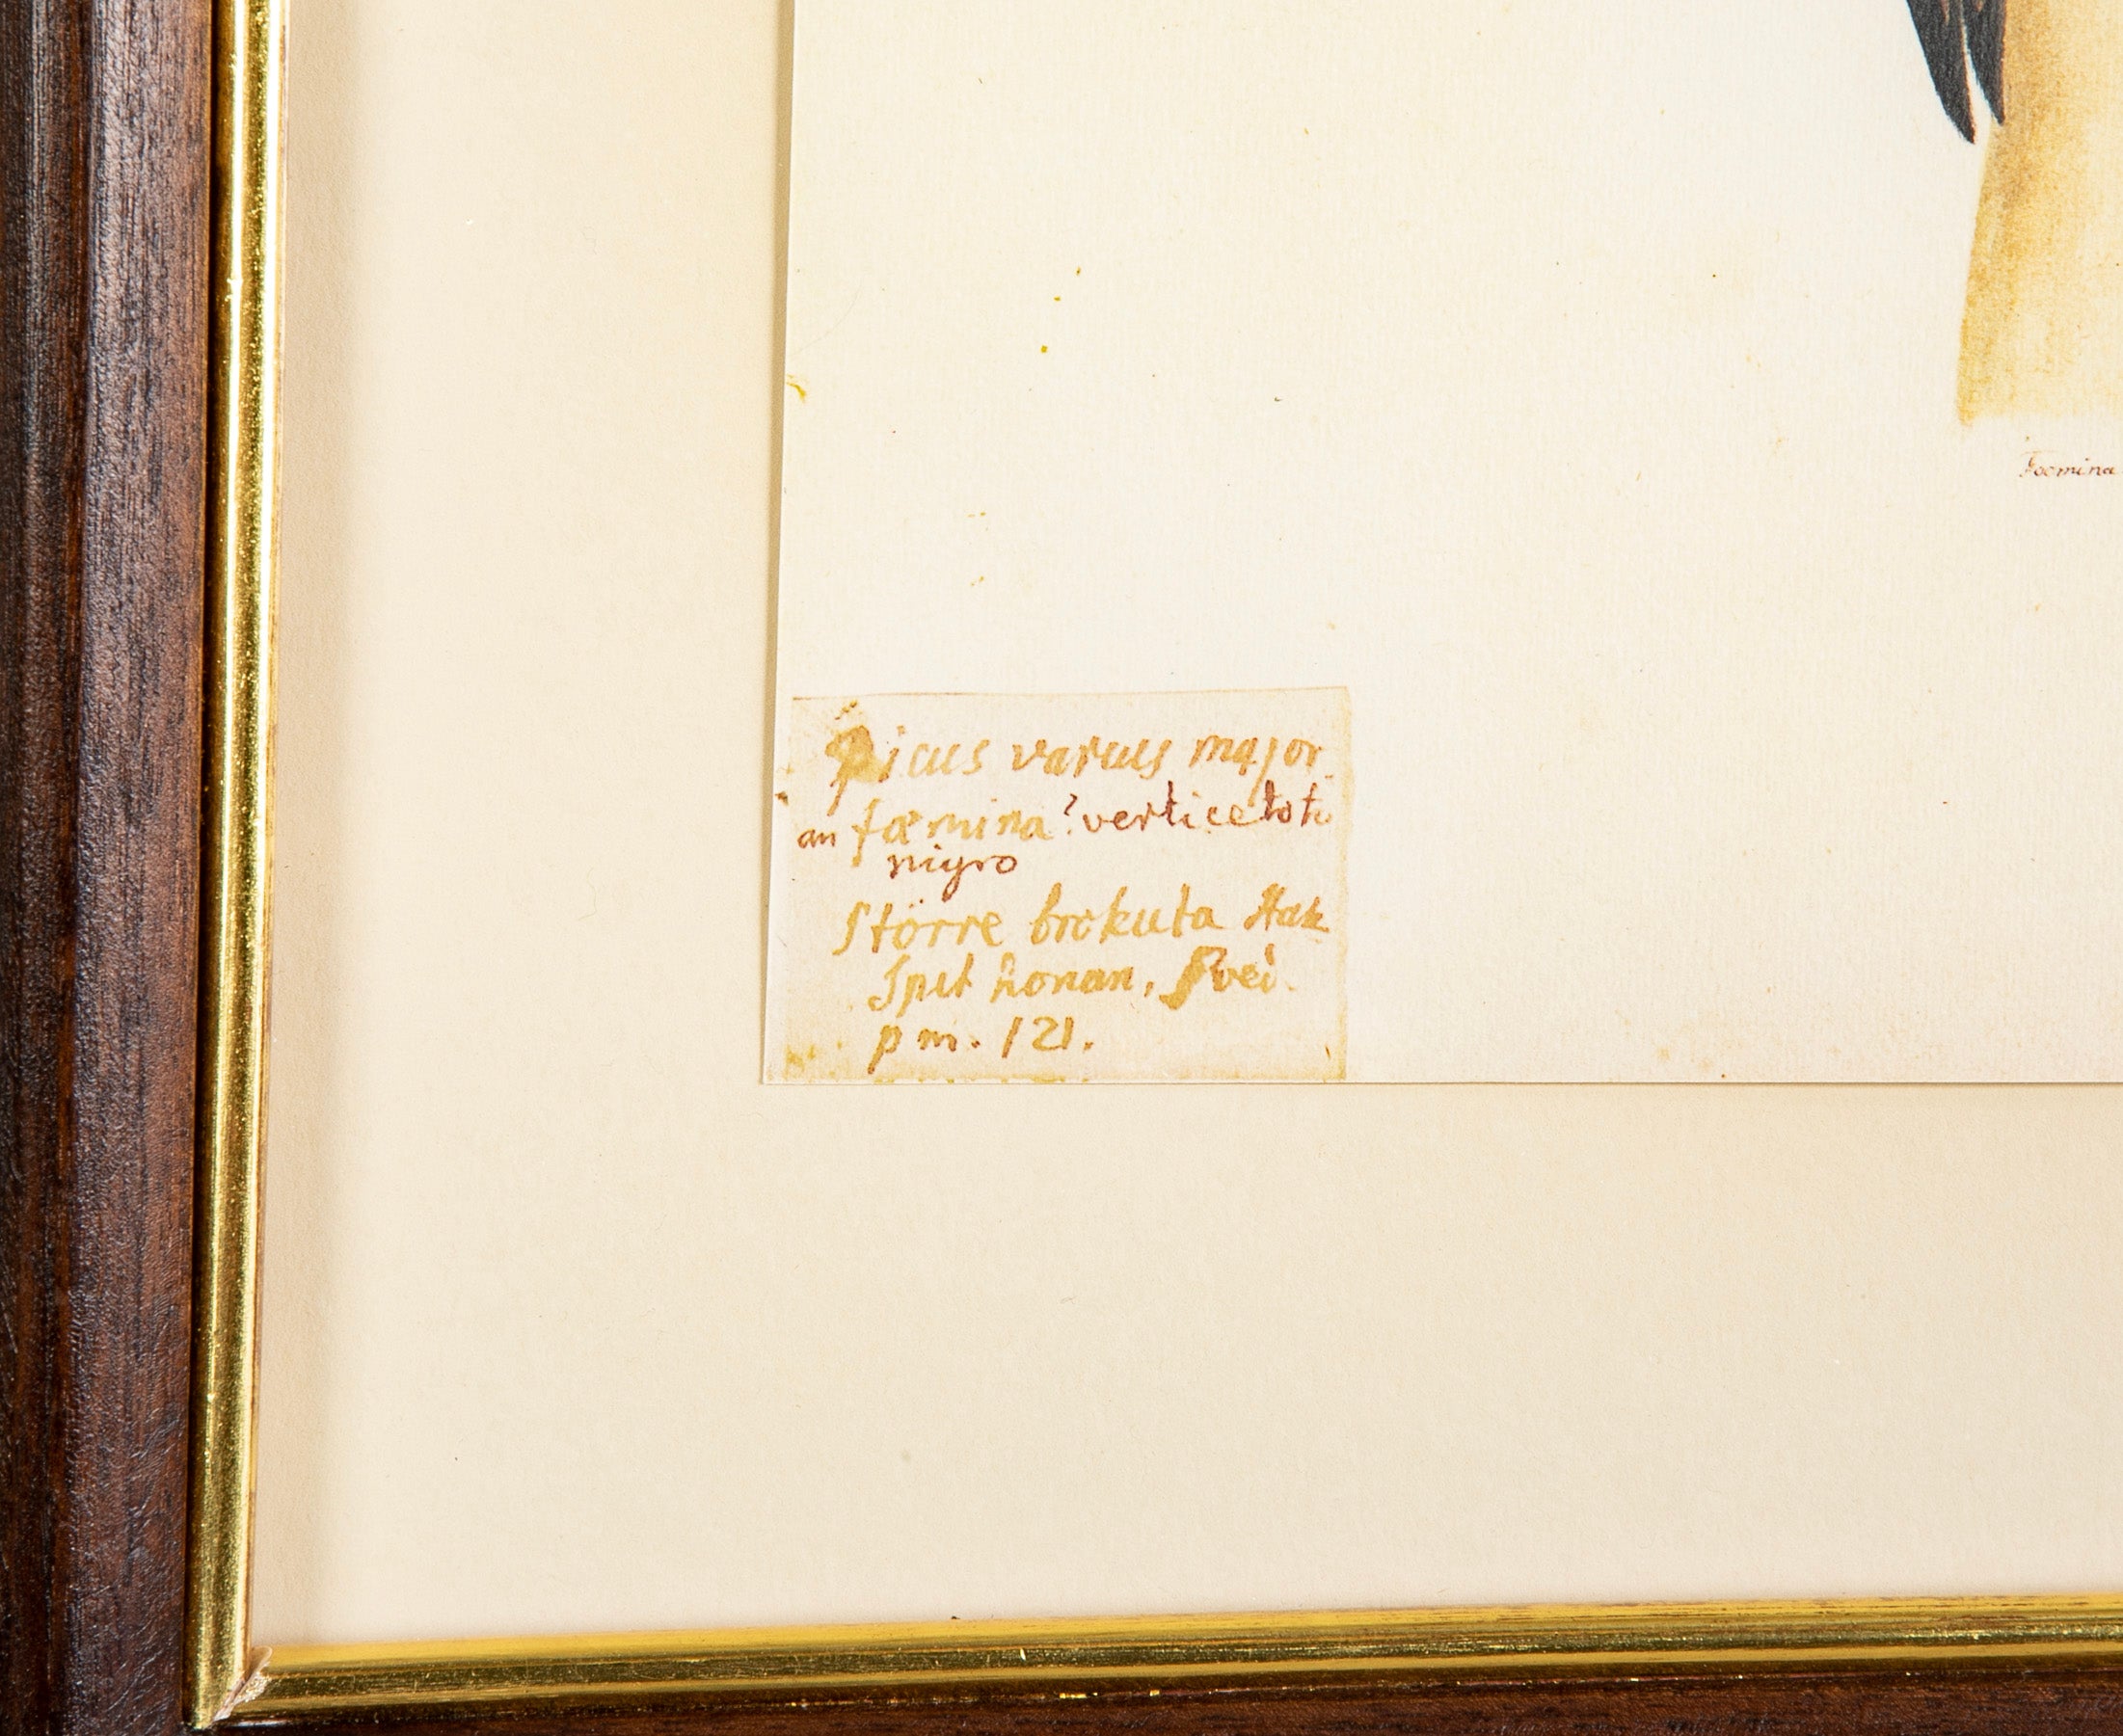 Foemina
Picus varius major.
an fœmina? vertice toto
nigro
Större brokuta Hak
Spit honan, Svei.
p m. 121.